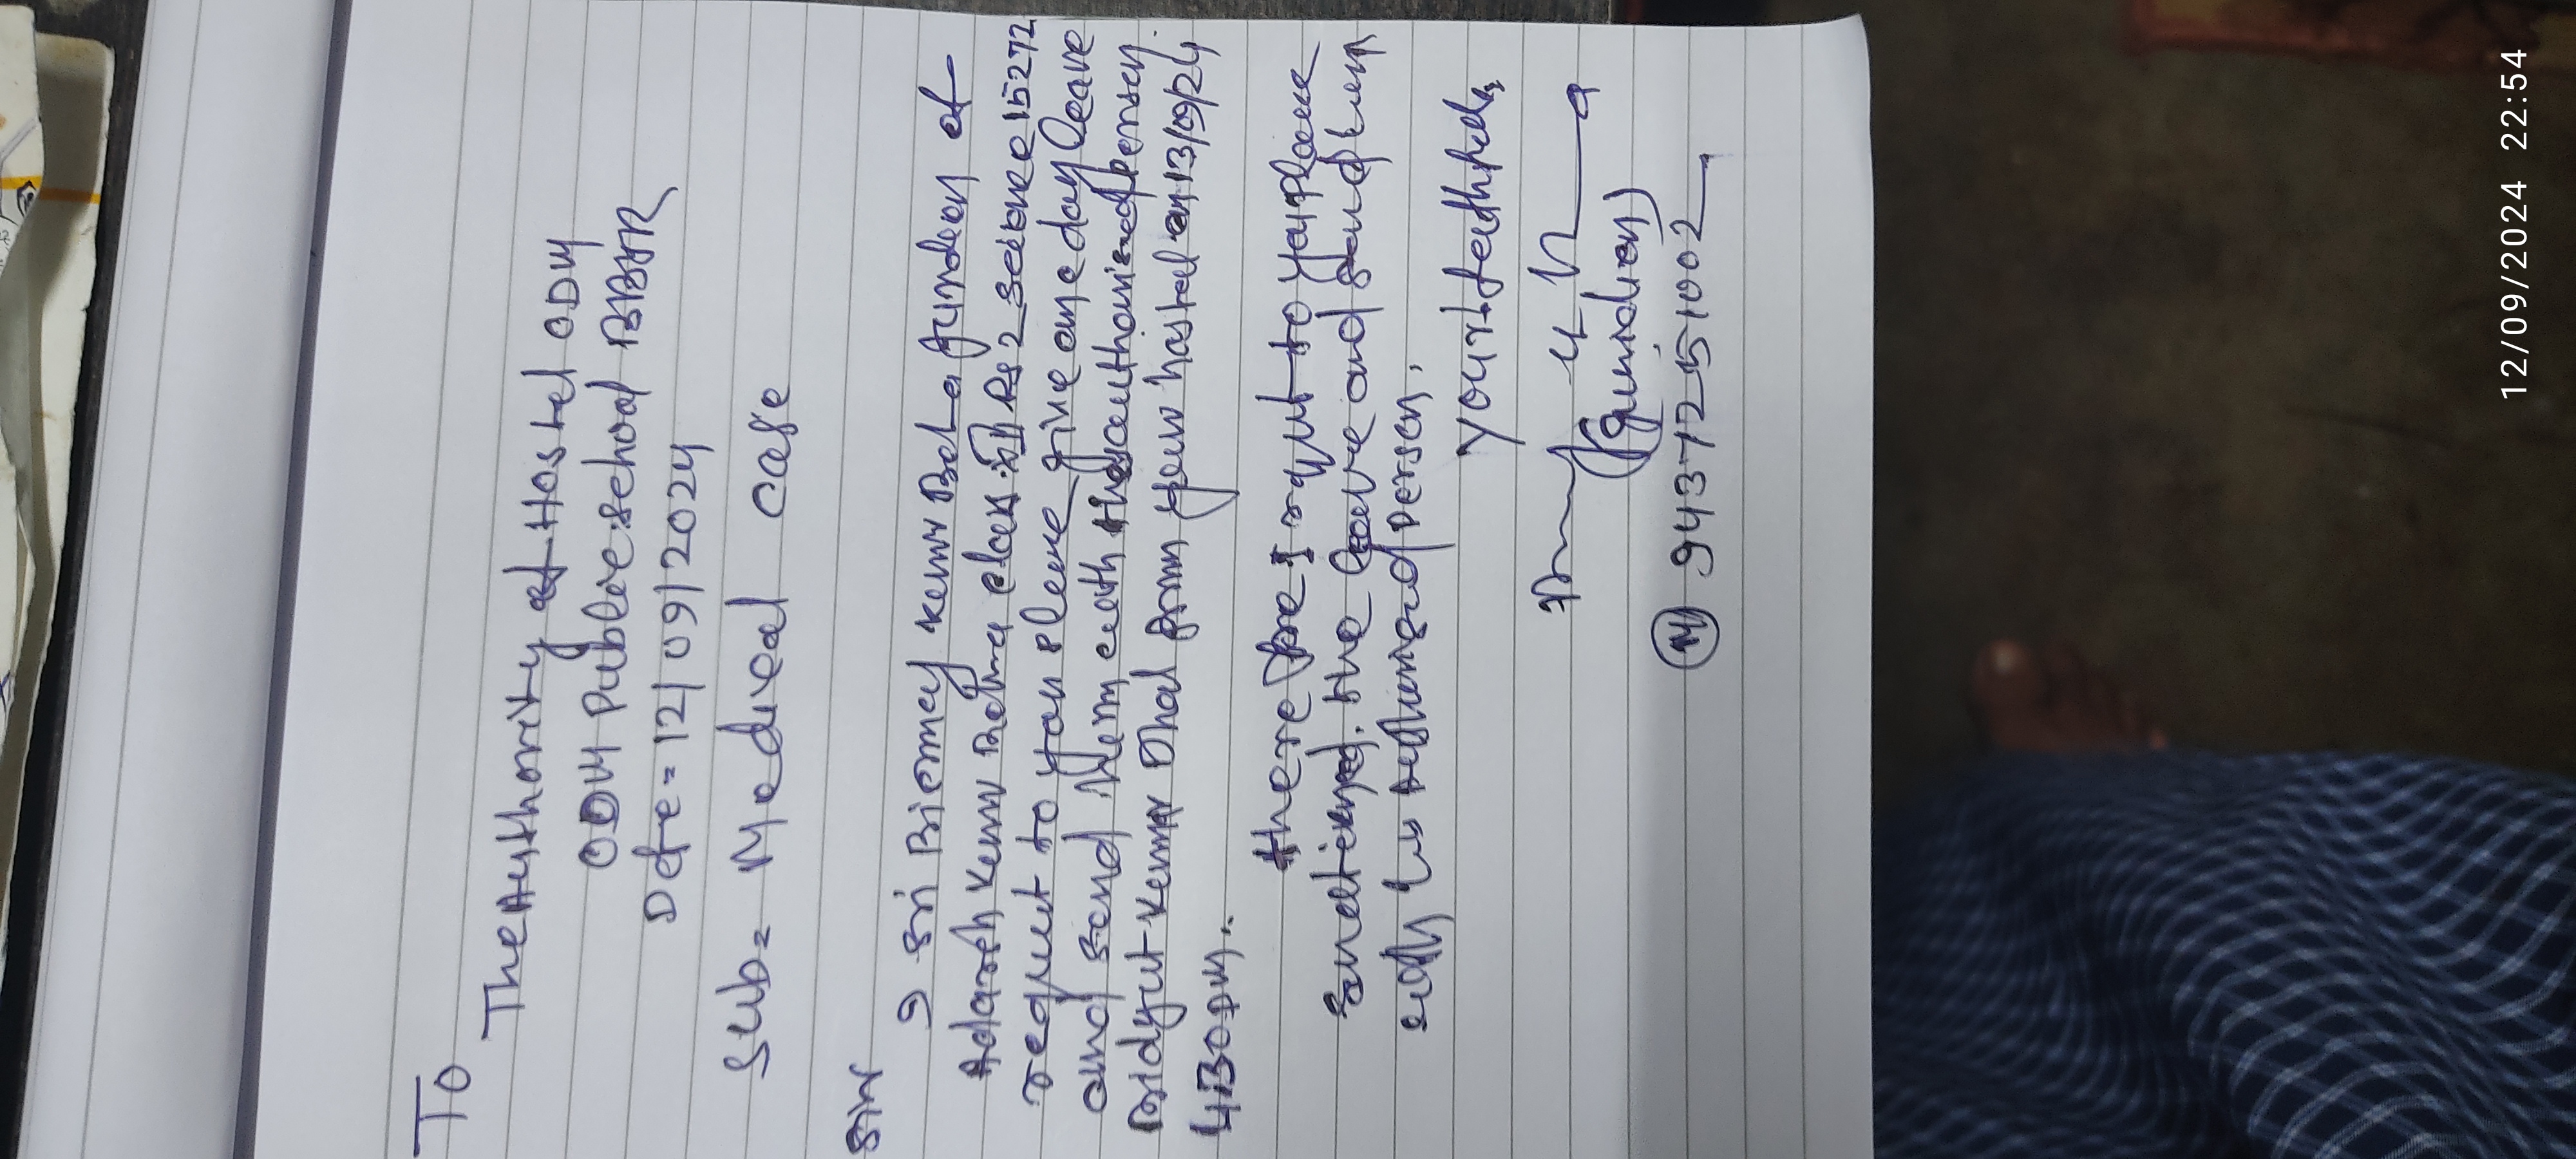 To
The Authority of Hostel ODM
ODM Public School BBSR
Date = 12/09/2024
Sub = Medical case
Sir
I Sri Bijay Kumar Bal a gurdian of
Adarsh Kumar class XII 2 science 15272
request to you please give one day leave
and send them with the authorised person
Bidyut Kumar Dhal from your hostel on 13/09/24
4.30 PM.
therefore I requst to you please
the leave and send him
with his authorized person.
Your faithfully
(gurdian)
(M) 9437251002
12/09/2024 22:54